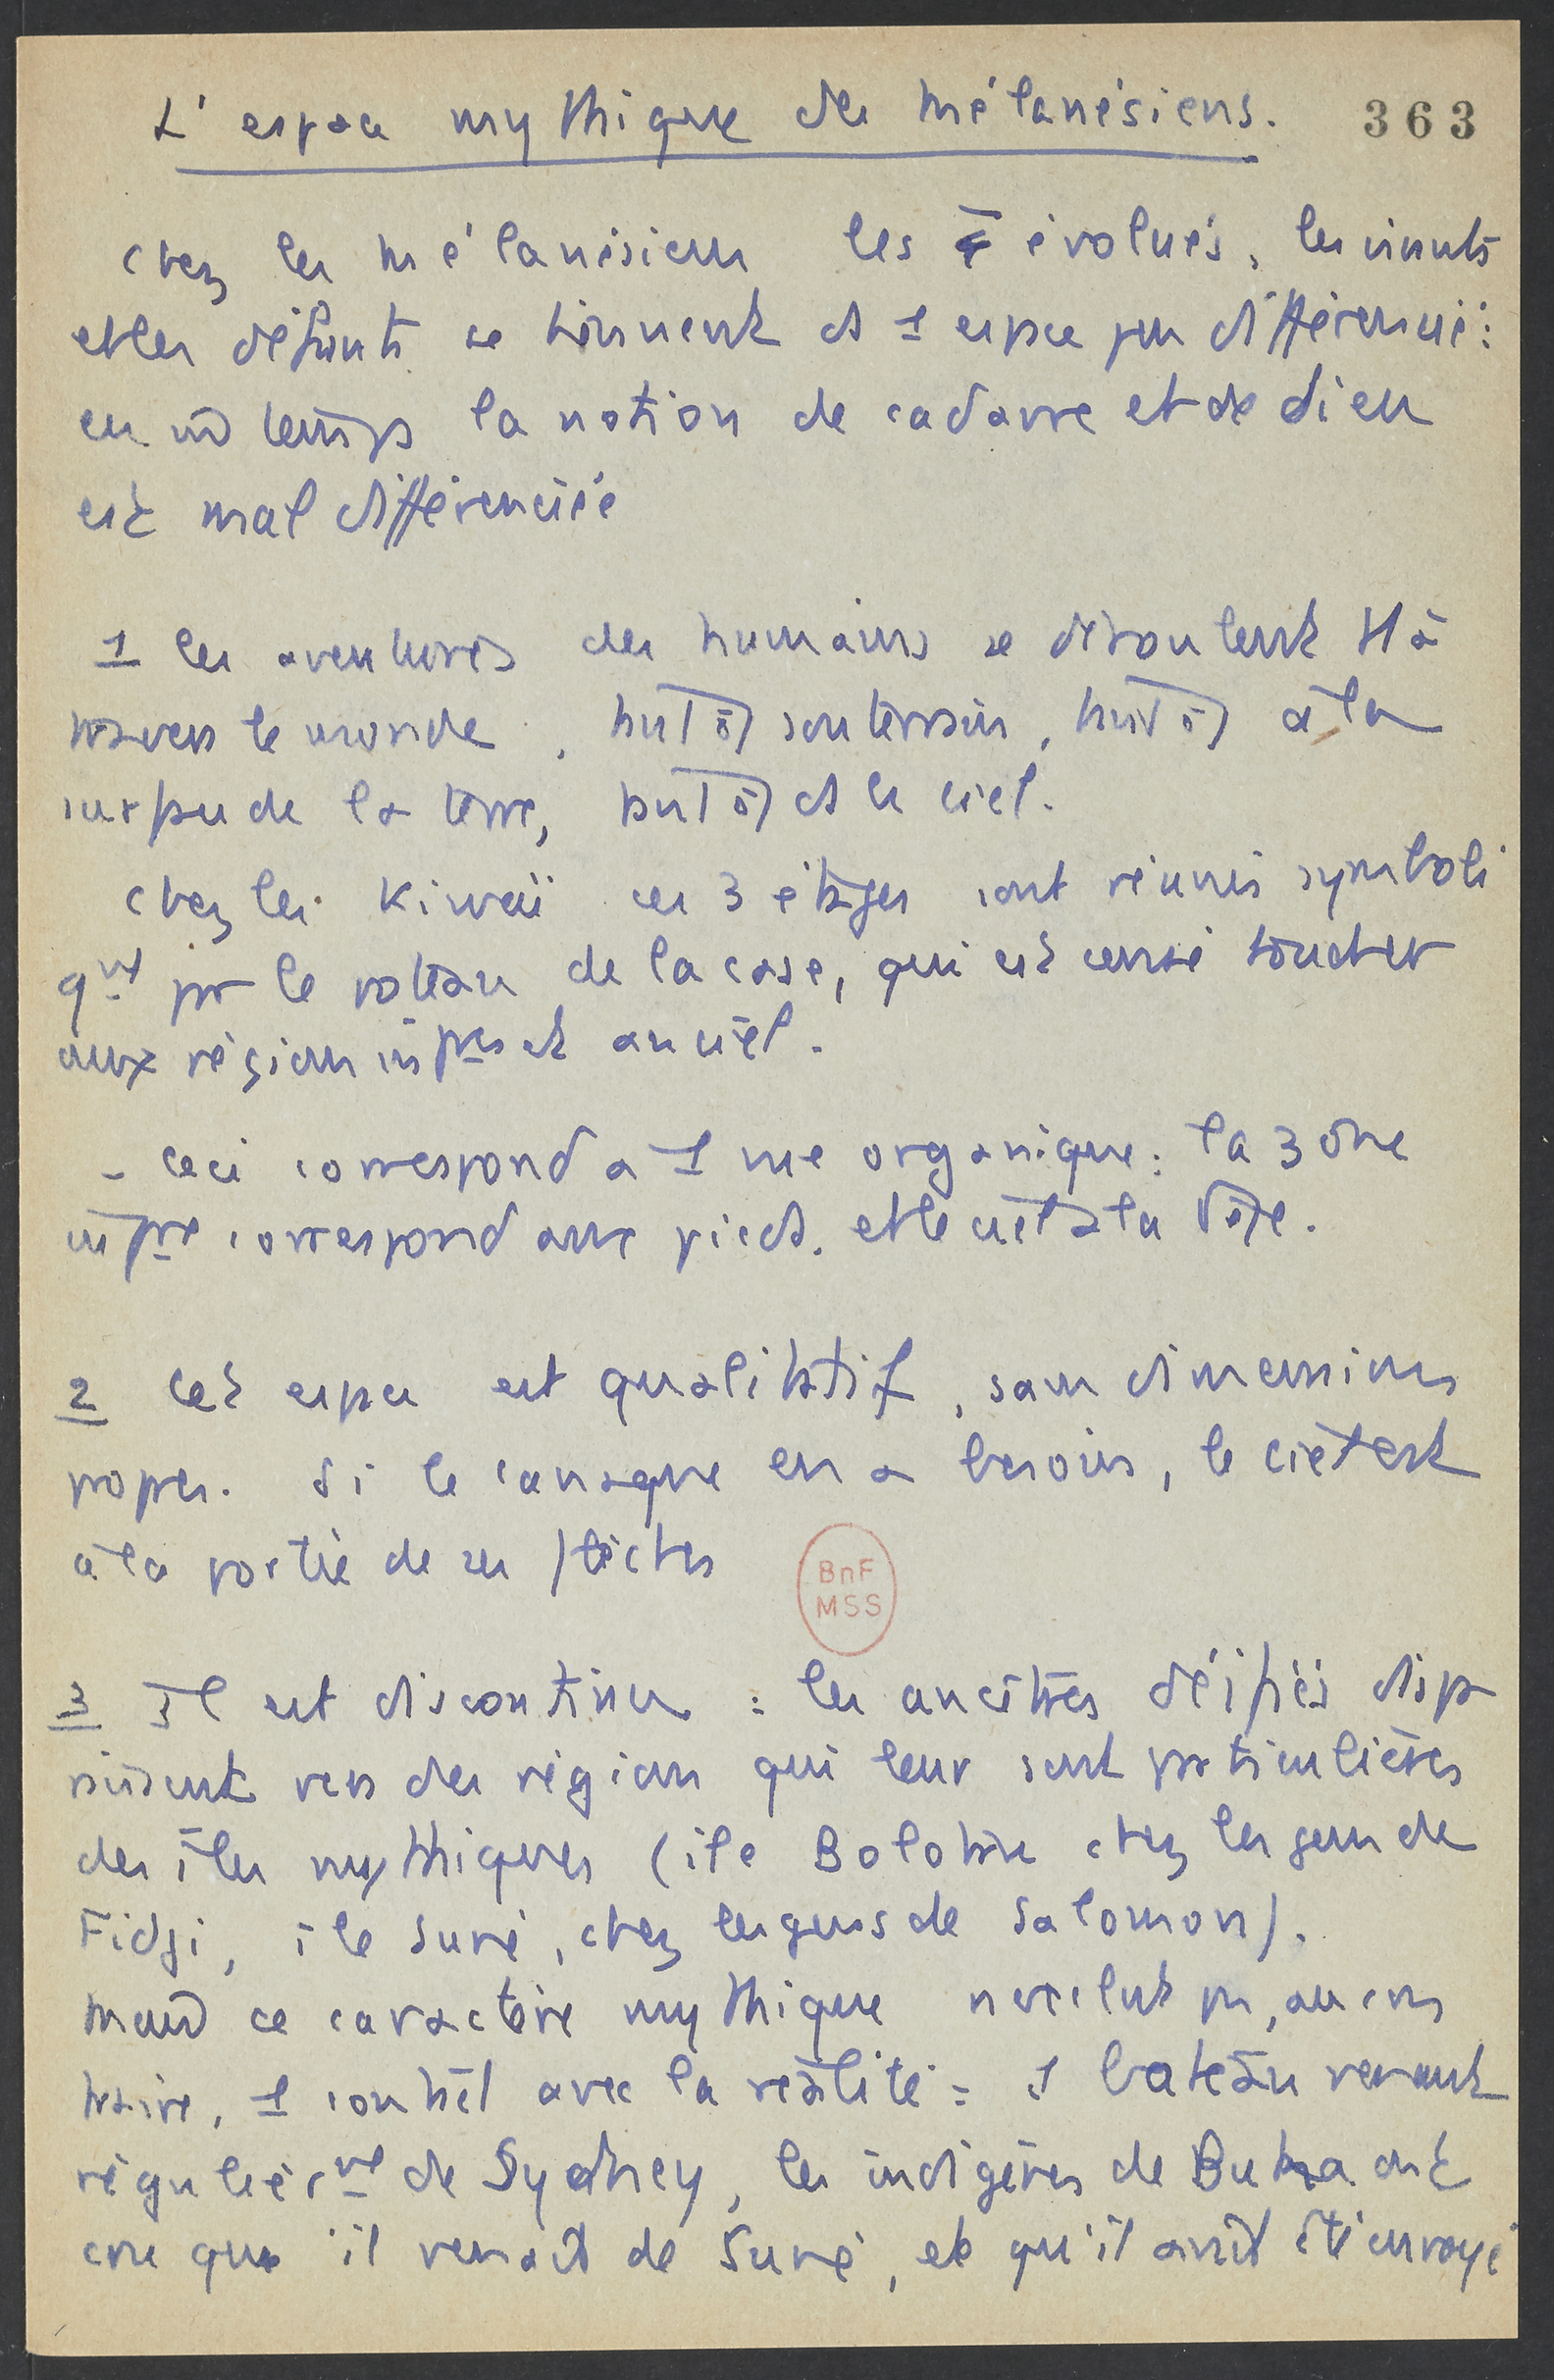 L'espace mythique des mélanésiens. 363
Chez les mélanésiens les évolués, les vivants
et les défunts se tiennent ds 1 espace peu différencié :
en m̂ temps la notion de cadavre et de dieu
est mal différenciée
1 les aventures des humains se déroulent tt à
travers le monde, tantôt souterrain, tantôt à la
surface de la terre, tantôt ds le ciel.
Chez les Kiwaii ces 3 étages sont réunis symboli
qmt par le poteau de la case, qui est censé toucher
aux régions infres et au ciel.
- Ceci correspond a 1 vue organique : la zône
infre correspond aux pieds, et le ciel a la tête.
2 Cet espace est qualitatif, sans dimensions
propres. Si le canaque en a besoin, le ciel est
à la portée de ses flèches
BnF
MSS
3 Il est discontinu : les ancêtres déifiés dispa
raissent vers des régions qui leur sont particulières
des îles mythiques (île Bolotru chez les gens de
Fidji, île Suné, chez les gens de Salomon).
Mais ce caractère mythique n'exclut pas, au con
traire, 1 contact avec la réalité : 1 bateau venant
régulièrmt de Sydney, les indigènes de Buka ont
cru que il venait de Suné, et qu'il avait été envoyé